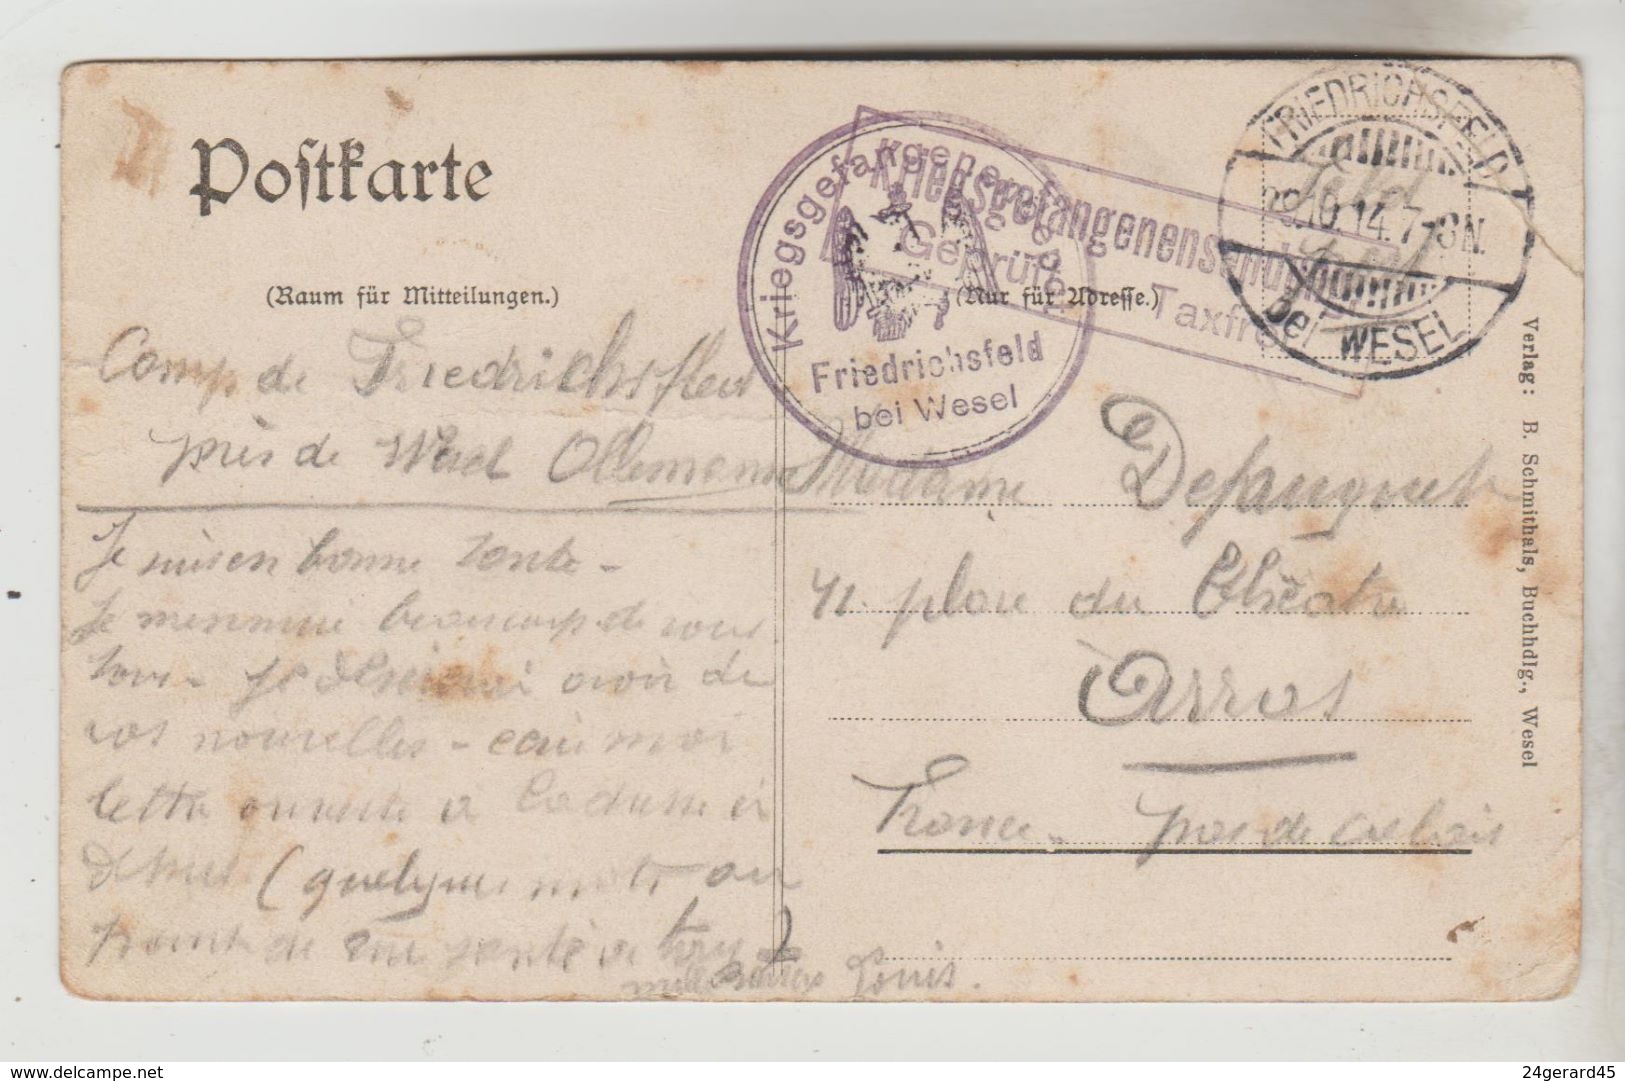 Postkarte
(Raum für Mitteilungen.)
(Nur für Adresse.)
Kriegsgefangenenlager
Geprüft
Friedrichsfeld
bei Wesel
Kriegsgefangenensendung
Taxfrei
FRIEDRICHSFELD
29.10.14. 7-8N.
bei WESEL
Feld
post
Camp de Friedrichsfled
près de Wesel Allemagne
Je suis en bonne santé -
Je m'ennuie beaucoup de vous
tous - Je désirerai avoir de
vos nouvelles - écris moi
lettre ouverte à
(quelques mots au
point de vue santé de tous)
mille baisers Louis.
Madame
41. place du Théâtre
à Arras
France - pas de Calais
Verlag: B. Schmithals, Buchhdlg., Wesel
www.delcampe.net
24gerard45